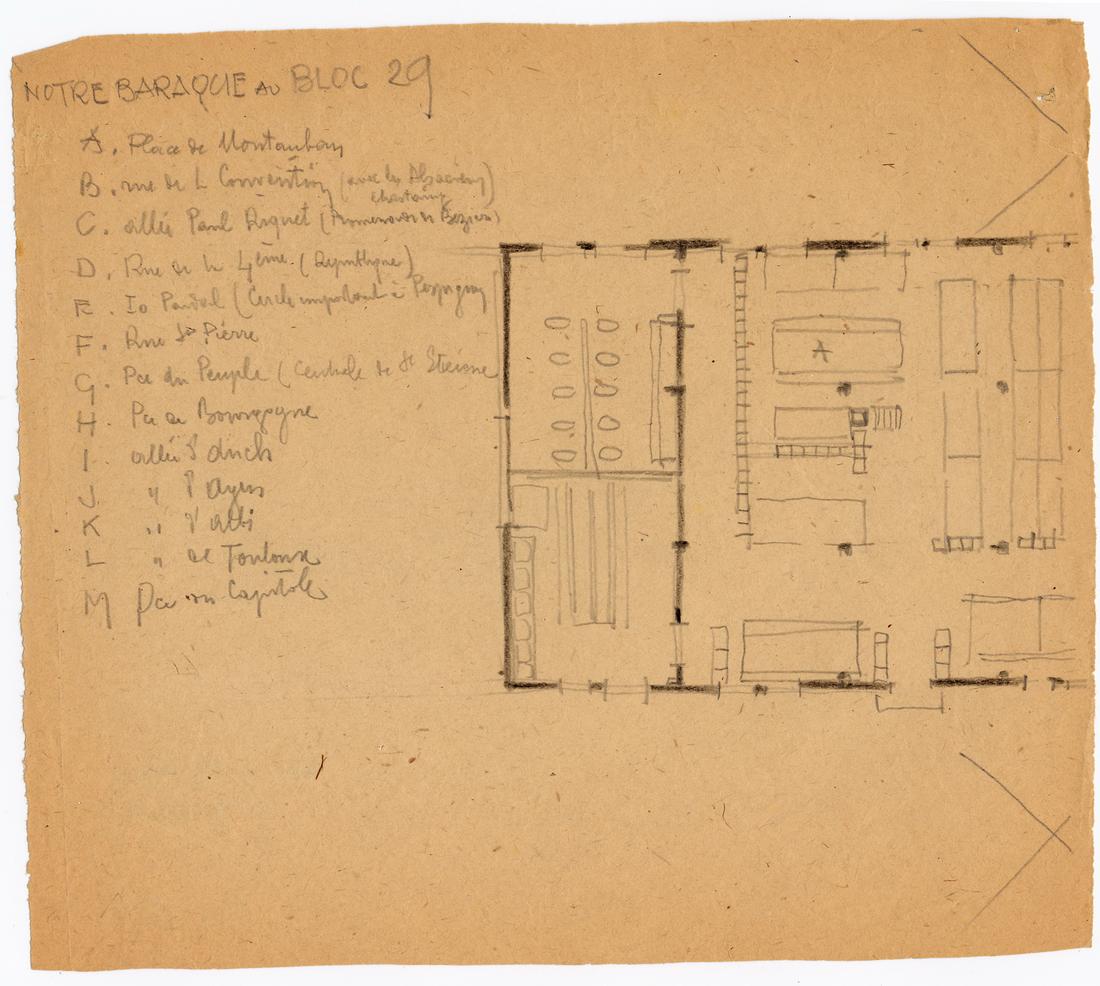 NOTRE BARAQUE AU BLOC 29
A. Place de Montauban
B. rue de la Convention (avec les Alsaciens)
C. allée Paul Riquet (Promenade de Béziers)
D. Rue de la 4ème.
E. (Cercle important à Perpignan
F. Rue St Pierre
G. Pce du Peuple (Centrale de St Etienne
H. Pce de Bourgogne
I. allée d'Auch
J " d'Agen
K " d'Albi
L " de Toulouse
M Pce du Capitole
A